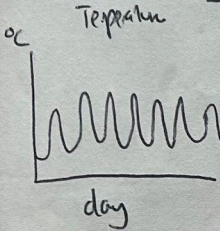 Tepeature
°C
day